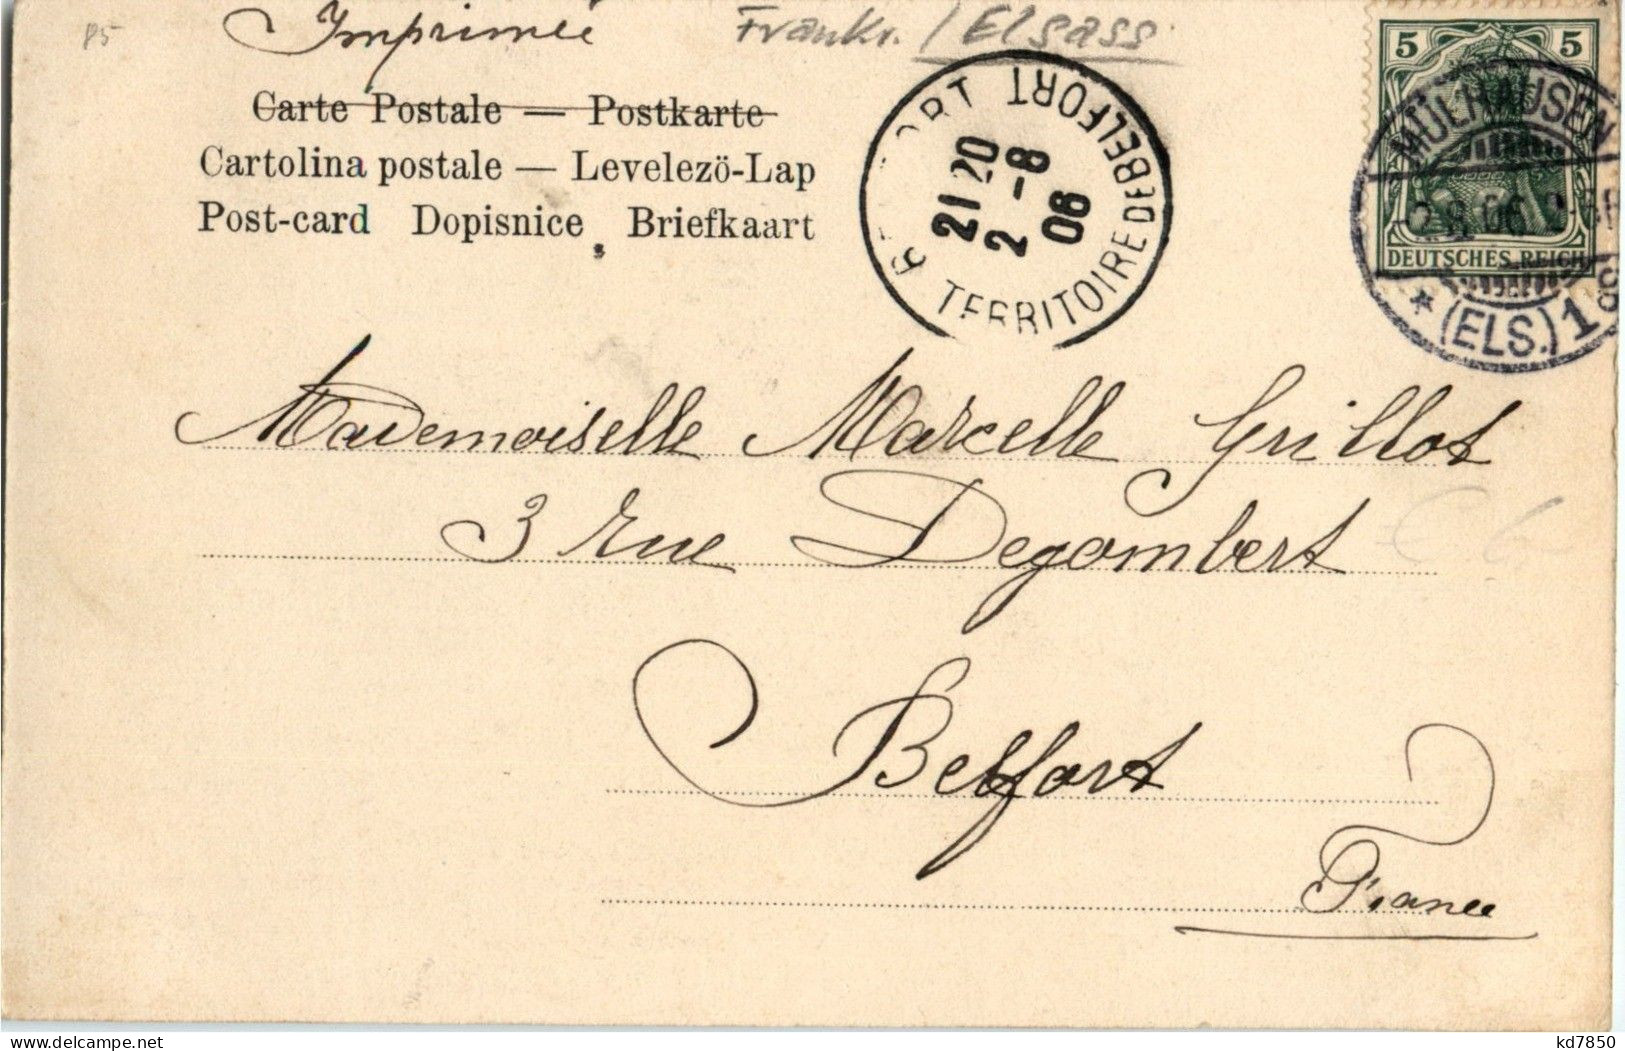 P5
Imprimée
Frankr. / Elsass
Carte Postale — Postkarte
Cartolina postale — Levelezö-Lap
Post-card Dopisnice Briefkaart
TERRITOIRE DE BELFORT
21 20
2 -8
06
5 5
MÜLHAUSEN
2.8.06
(ELS.) 1
DEUTSCHES REICH
Mademoiselle Marcelle Grillot
3 rue Degombert
Belfort
France
kd7850